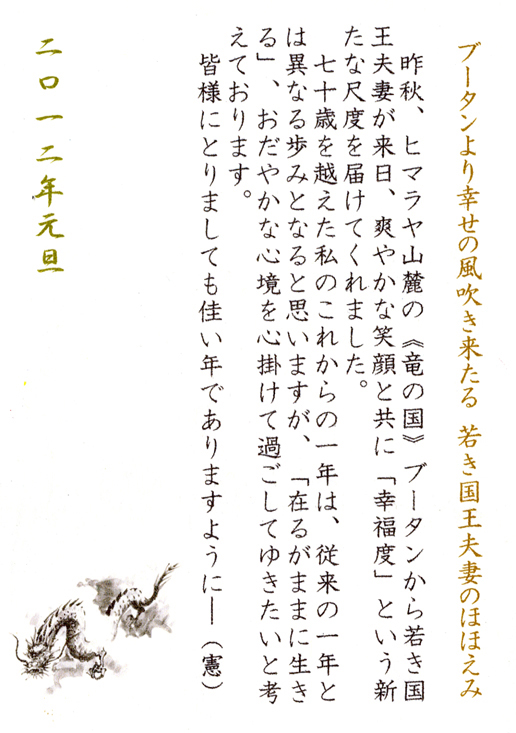 ブータンより幸せの風吹き来たる 若き国王夫妻のほほえみ
昨秋、ヒマラヤ山麓の《竜の国》ブータンから若き国
王夫妻が来日、爽やかな笑顔と共に「幸福度」という新
たな尺度を届けてくれました。
七十歳を越えた私のこれからの一年は、従来の一年と
は異なる歩みとなると思いますが、「在るがままに生き
る」、おだやかな心境を心掛けて過ごしてゆきたいと考
えております。
皆様にとりましても佳い年でありますように―（憲）
二〇一二年元旦